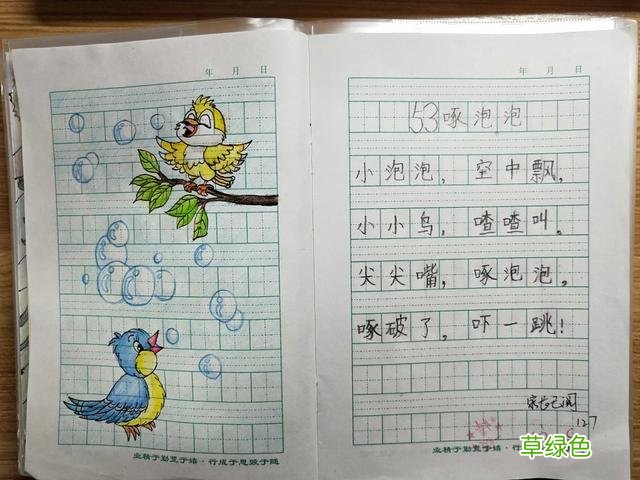 年 月 日
业精于勤荒于嬉·行成于思毁于随
年 月 日
53 啄泡泡
小泡泡，空中飘，
小小鸟，喳喳叫。
尖尖嘴，啄泡泡，
啄破了，吓一跳！
家长已阅
127
业精于勤荒于嬉·行
草绿色